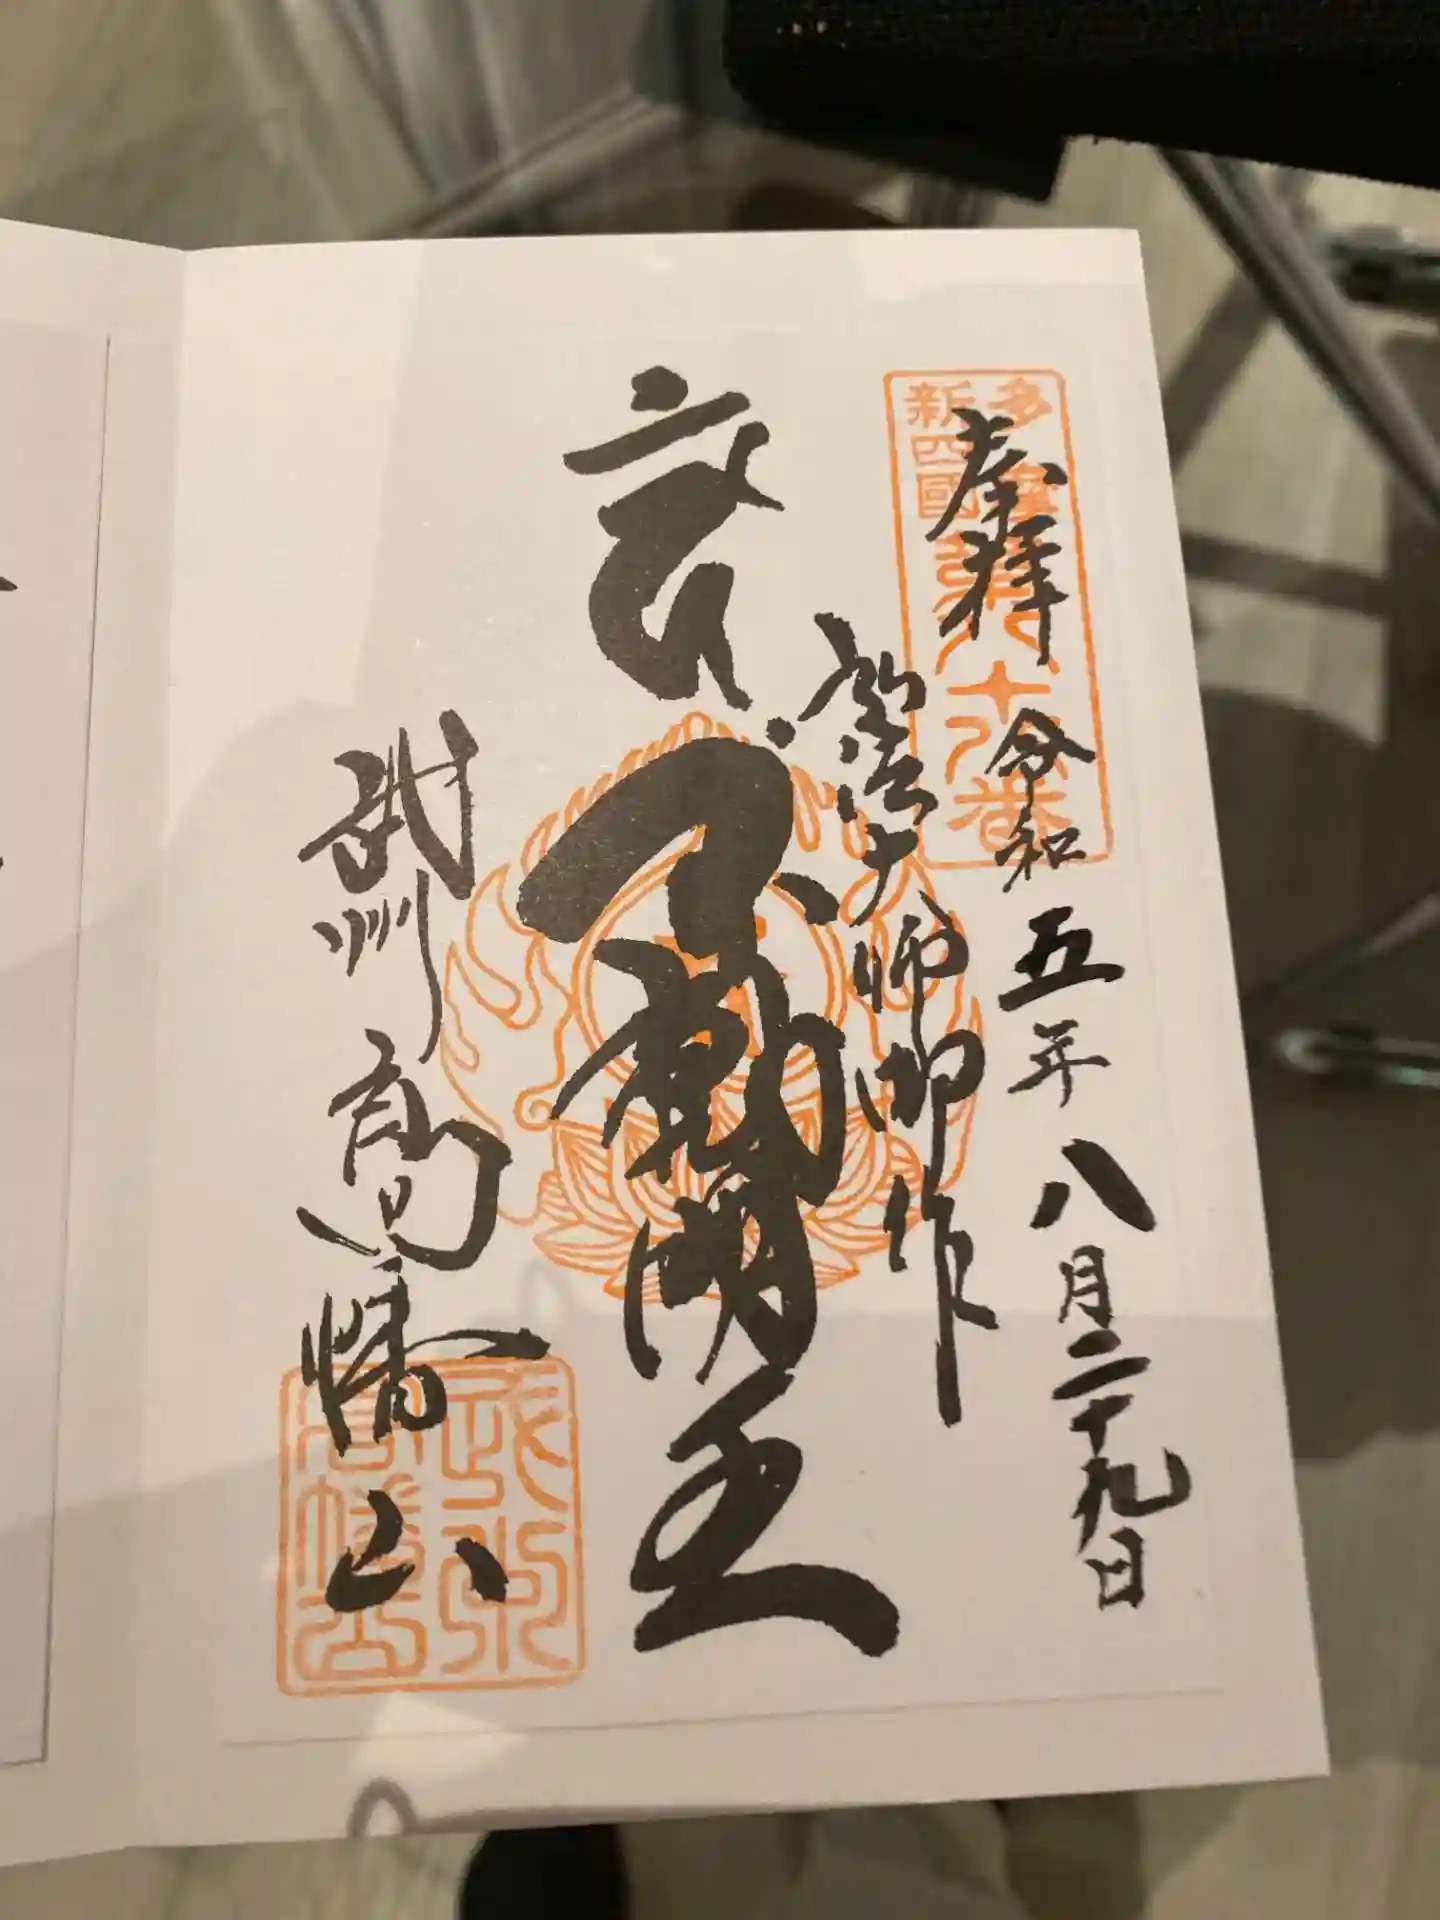 多摩
新四國
第八十八番
奉拝
令和五年八月二十九日
弘法大師御作
不動明王
武州高幡山
武州
高幡山